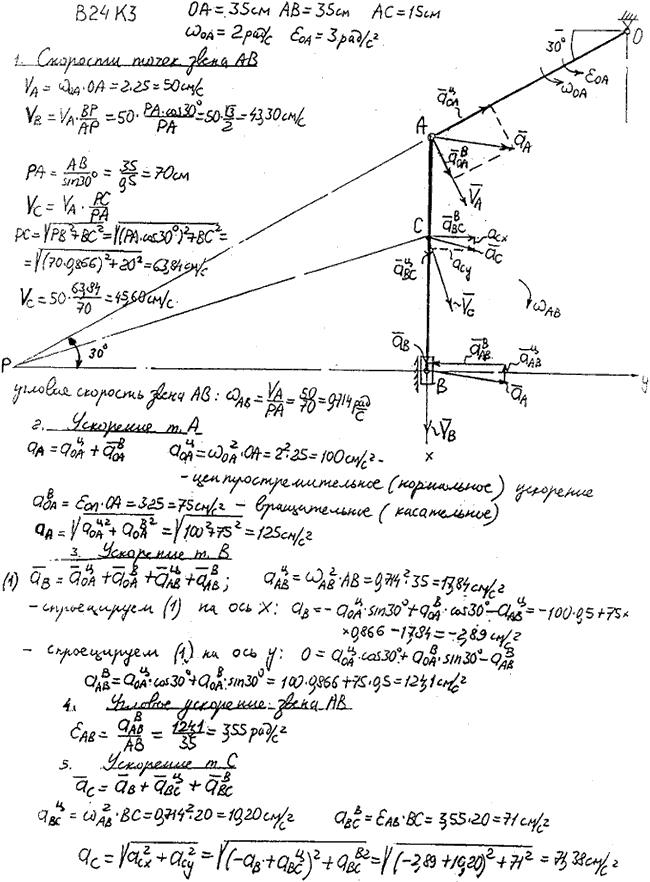 В24 К3 OA = 35см AB = 35см AC = 15см
ω_OA = 2 рад/с ε_OA = 3 рад/с²
1. Скорости точек звена АВ
V_A = ω_OA · OA = 2·25 = 50 см/с
V_B = V_A · BP/AP = 50 · PA·cos30°/PA = 50 · √3/2 = 43,30 см/с
PA = AB/sin30° = 35/0,5 = 70см
V_C = V_A · PC/PA
PC = √(PB² + BC²) = √((PA·cos30°)² + BC²) =
= √((70·0,866)² + 20²) = 63,84 см/с
V_C = 50 · 63,84/70 = 45,60 см/с
30°
O
ε_OA
ω_OA
ā^ц_OA
A
ā_A
ā^в_OA
V̄_A
C
ā^в_BC
a_cx
ā_C
ā^ц_BC
a_cy
V̄_C
ω_AB
P
30°
ā_B
ā^в_AB
ā^ц_AB
y
B
ā_A
V̄_B
x
угловая скорость звена АВ: ω_AB = V_A/PA = 50/70 = 0,714 рад/с
2. Ускорение т. А
ā_A = ā^ц_OA + ā^в_OA a^ц_OA = ω_OA² · OA = 2²·25 = 100 см/с² -
- центростремительное (нормальное) ускорение
a^в_OA = ε_OA · OA = 3·25 = 75 см/с² - вращательное (касательное)
a_A = √(a^ц_OA² + a^в_OA²) = √(100² + 75²) = 125 см/с²
3. Ускорение т. В
(1) ā_B = ā^ц_OA + ā^в_OA + ā^ц_AB + ā^в_AB; a^ц_AB = ω_AB² · AB = 0,714² · 35 = 17,84 см/с²
- спроецируем (1) на ось х: a_B = - a^ц_OA · sin30° + a^в_OA · cos30° - a^ц_AB = -100·0,5 + 75×
×0,866 - 17,84 = -2,89 см/с²
- спроецируем (1) на ось у: 0 = a^ц_OA · cos30° + a^в_OA · sin30° - a^в_AB
a^в_AB = a^ц_OA · cos30° + a^в_OA · sin30° = 100·0,866 + 75·0,5 = 124,1 см/с²
4. Угловое ускорение звена АВ
ε_AB = a^в_AB/AB = 124,1/35 = 3,55 рад/с²
5. Ускорение т. С
ā_C = ā_B + ā^ц_BC + ā^в_BC
a^ц_BC = ω_AB² · BC = 0,714² · 20 = 10,20 см/с² a^в_BC = ε_AB · BC = 3,55 · 20 = 71 см/с²
a_C = √(a_cx² + a_cy²) = √((-a_B + a^ц_BC)² + a^в_BC²) = √((-2,89 + 10,20)² + 71²) = 71,38 см/с²